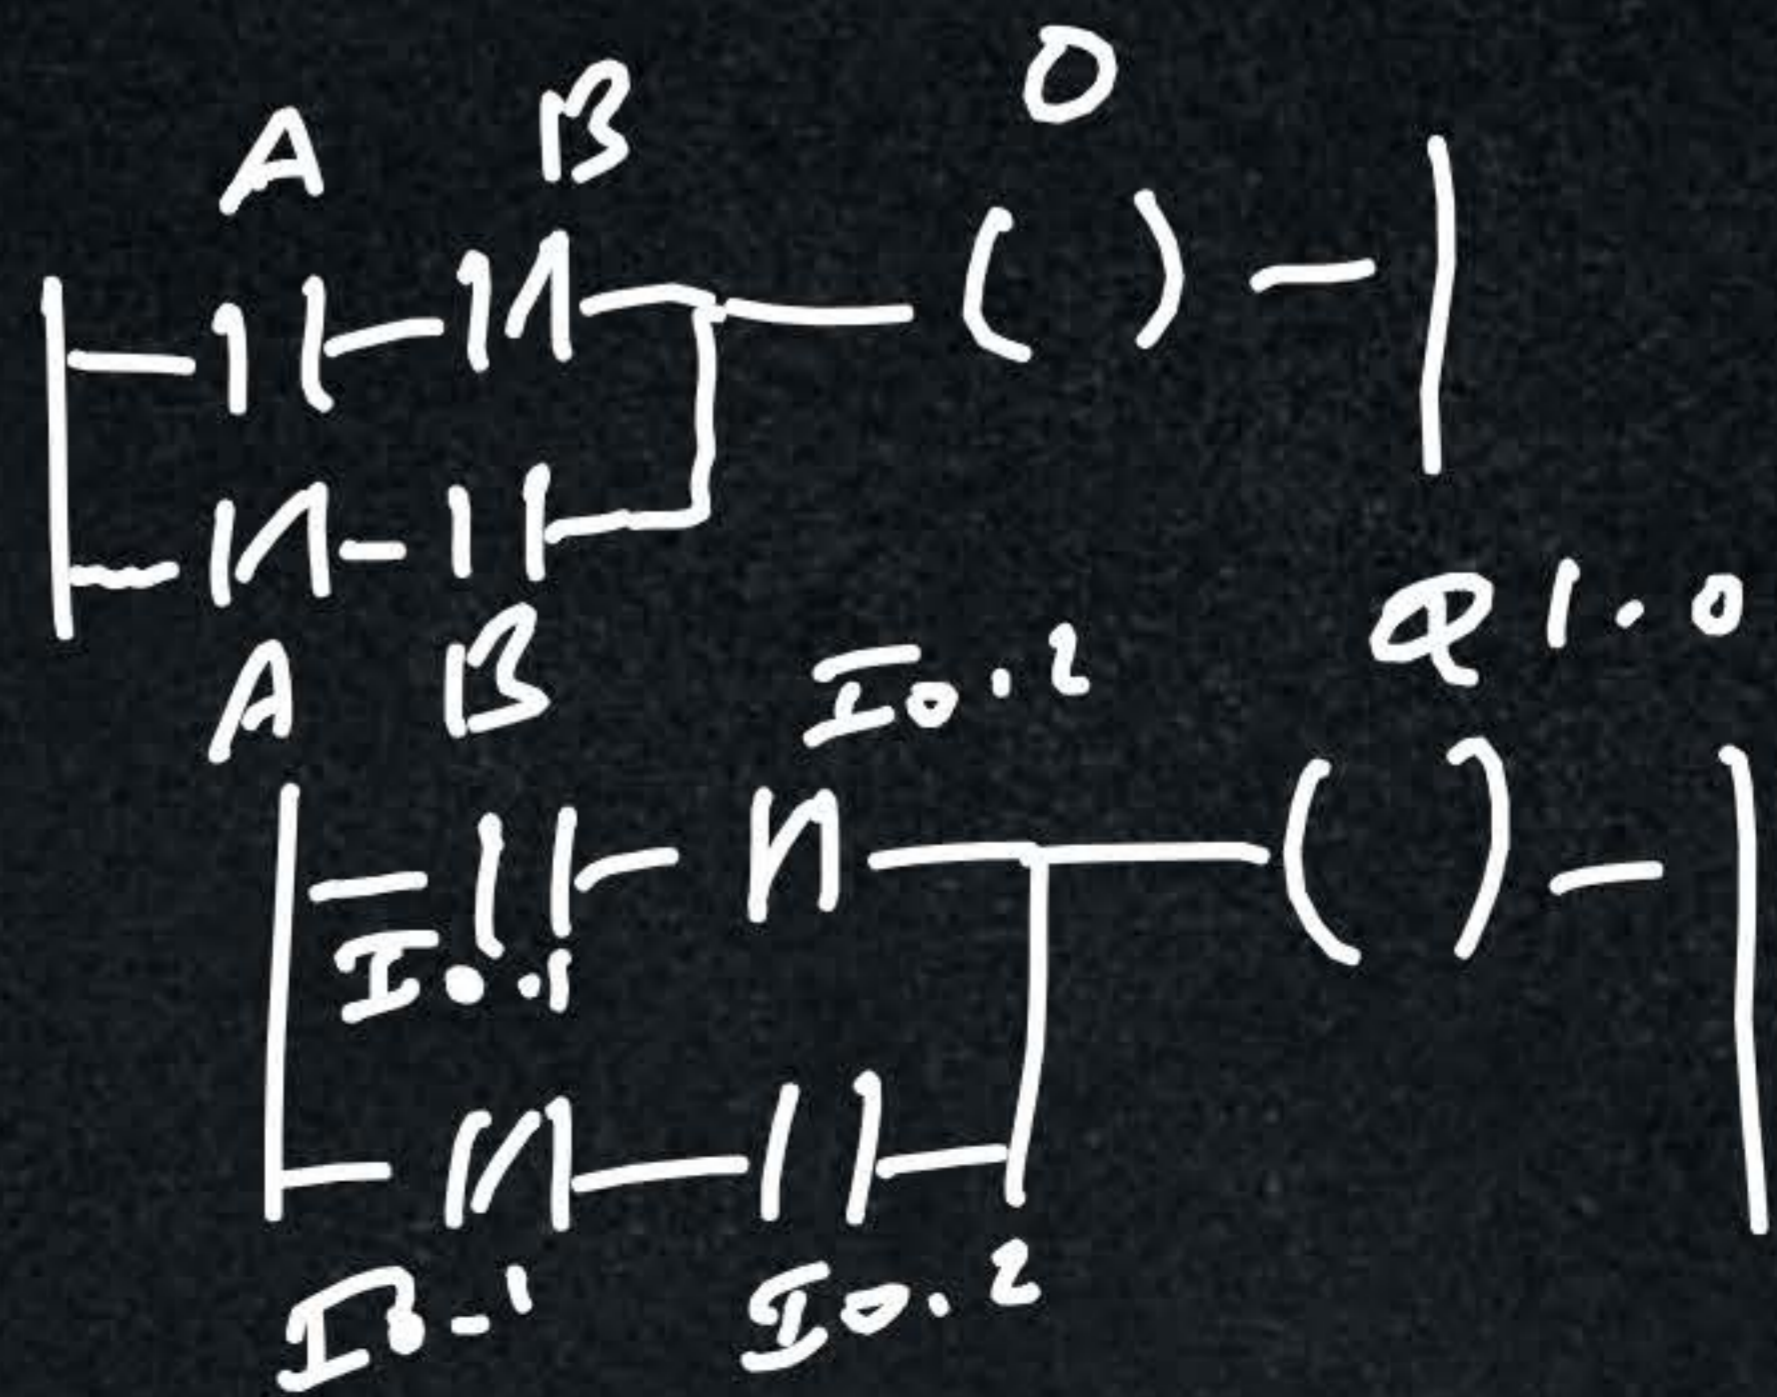 A B O
A B
I0.2 Q1.0
I0.1
I0.1 I0.2